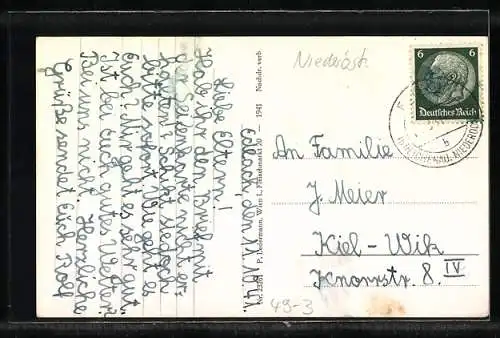 Edlach, den 11.10.41.
Liebe Eltern!
Hab ihr den Brief mit
der Seifenkarte nicht er-
halten? Schreibt jedoch
bitte sofort. Wie geht es
Euch? Mir geht es sehr gut.
Ist bei Euch gutes Wetter?
Bei uns nicht. Herzliche
Grüße sendet Euch Rolf
P. Ledermann, Wien I., Fleischmarkt 20 — 1941 Nachdr. verb.
Niederöst.
6 6
Deutsches Reich
An Familie
J. Meier
Kiel-Wik
Knorrstr. 8. IV.
49-3